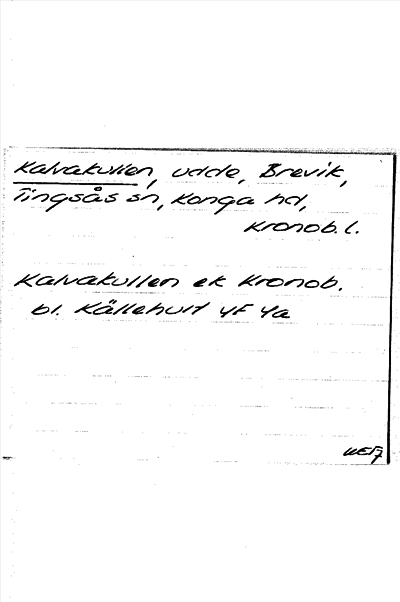 Kalvakullen, udde, Brevik,
Tingsås sn, Konga hd,
Kronob. l.
Kalvakullen ek Kronob.
bl. Källehult 4F 4a